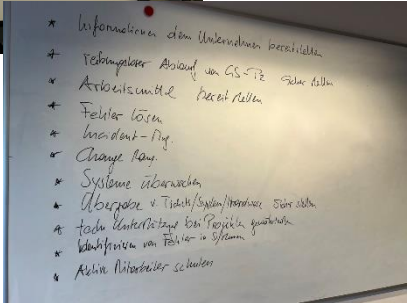 * Informationen dem Unternehmen bereitstellen
* reibungsloser Ablauf von GS-Tz sicherstellen
* Arbeitsmittel bereitstellen
* Fehler lösen
* Incident-Mng.
* Change Mang.
* Systeme überwachen
* Übergabe v. Tickets/System/Hardware sicherstellen
* Unterstützung bei Projekten
* Identifizieren von Fehler in Systemen
* Aktive Mitarbeiter schulen